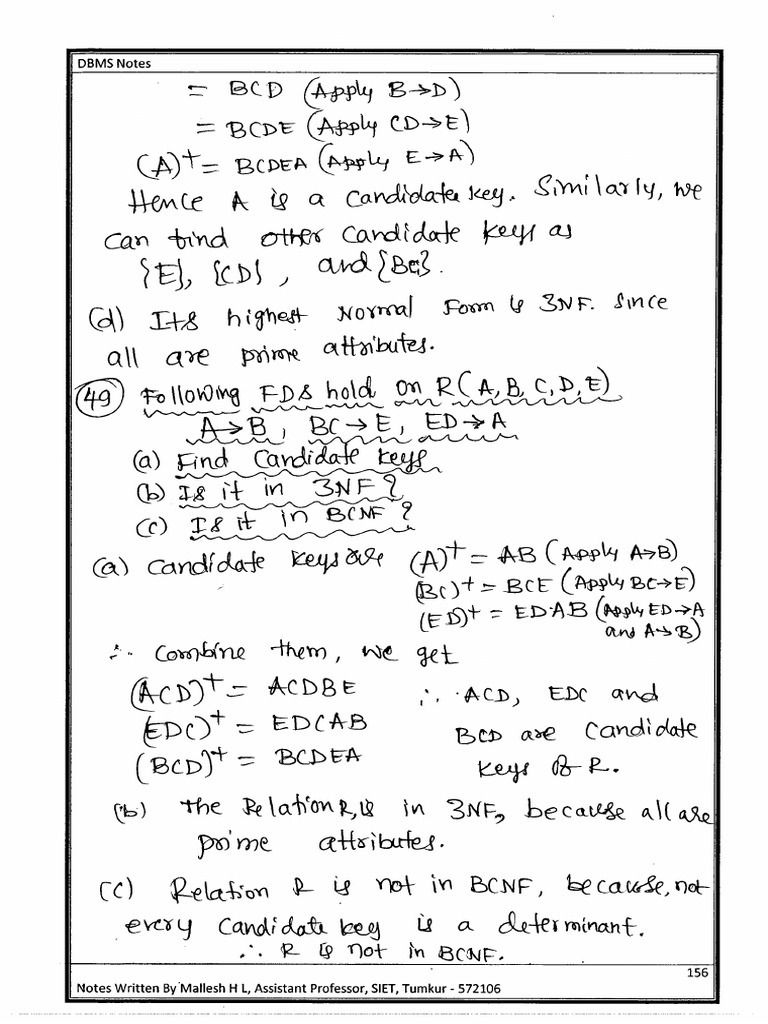 DBMS Notes
= BCD (Apply B→D)
= BCDE (Apply CD→E)
(A)+ = BCDEA (Apply E→A)
Hence A is a candidate key. Similarly, we
can find other candidate keys as
{E}, {CD}, and {BC}.
(d) Its highest Normal Form is 3NF. Since
all are prime attributes.
(49) Following FDs hold on R(A,B,C,D,E)
A→B, BC→E, ED→A
(a) Find Candidate Keys
(b) Is it in 3NF?
(c) Is it in BCNF?
(a) Candidate keys are (A)+ = AB (Apply A→B)
(BC)+ = BCE (Apply BC→E)
(ED)+ = EDAB (Apply ED→A
and A→B)
∴ Combine them, we get
(ACD)+ = ACDBE ∴ ACD, EDC and
(EDC)+ = EDCAB BCD are Candidate
(BCD)+ = BCDEA Keys of R.
(b) The Relation R, is in 3NF, because all are
prime attributes.
(c) Relation R is not in BCNF, because, not
every candidate key is a determinant.
∴ R is not in BCNF.
156
Notes Written By Mallesh H L, Assistant Professor, SIET, Tumkur - 572106